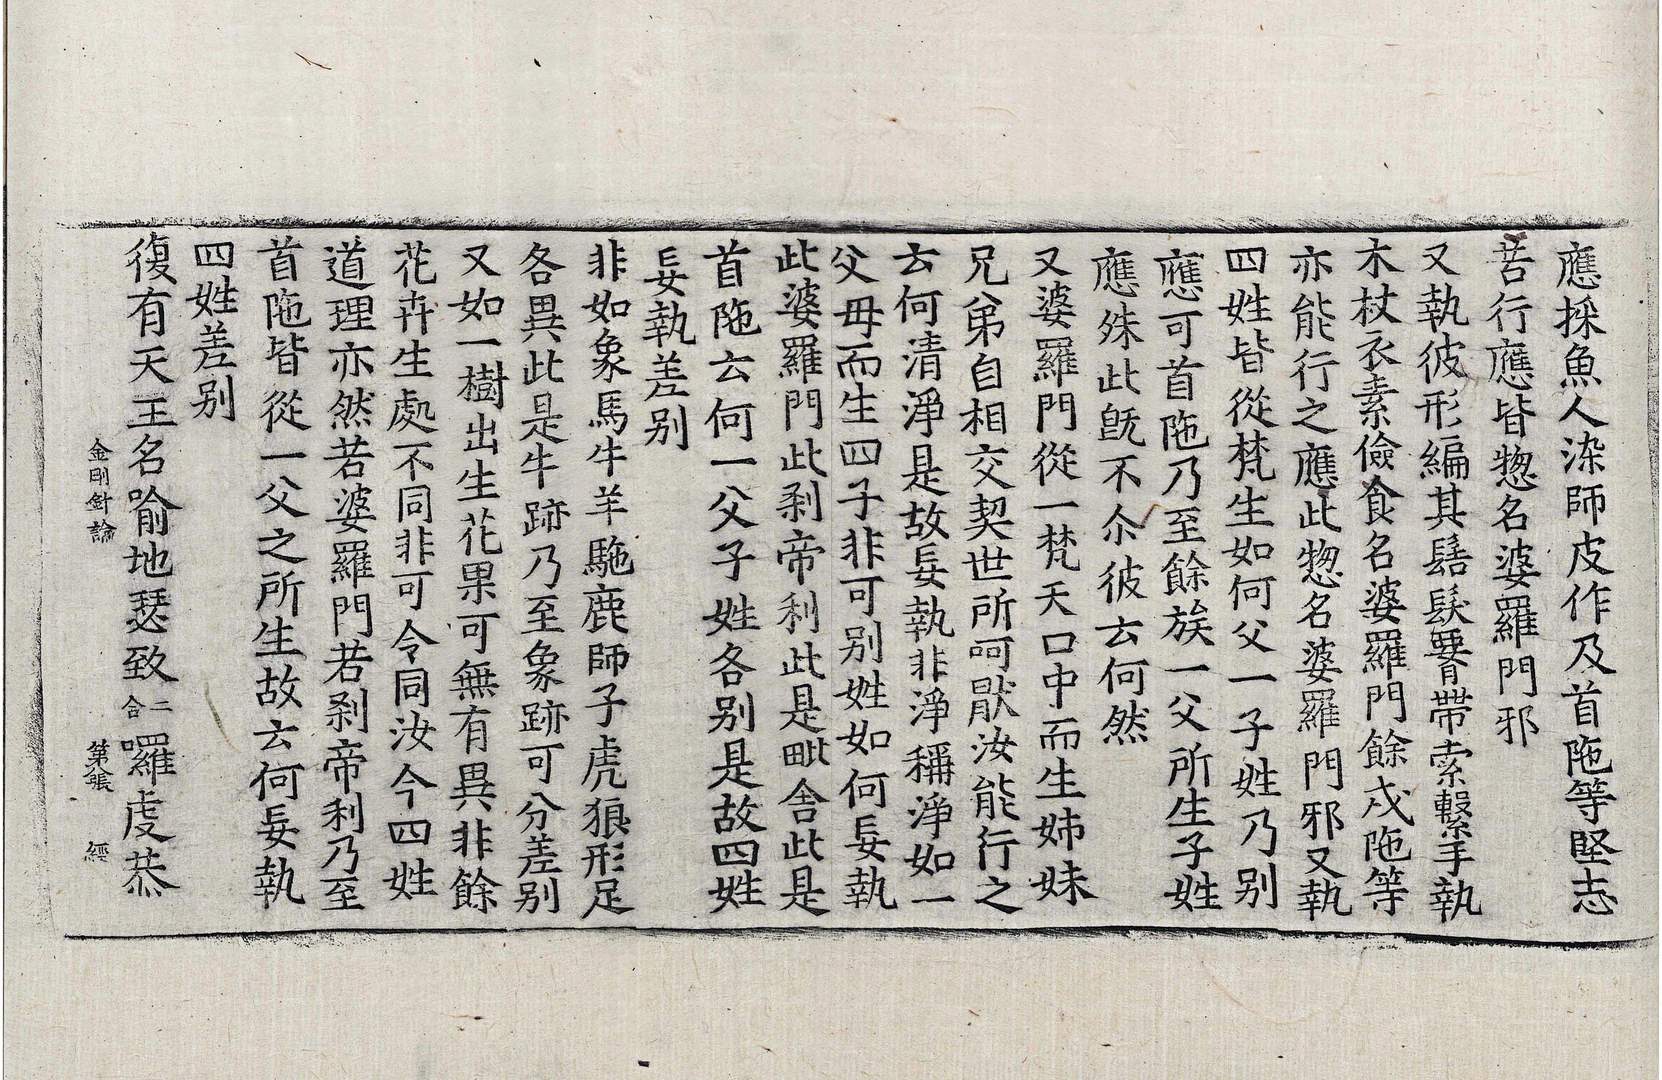 應採魚人染師皮作及首陁等堅志
苦行應皆惣名婆羅門邪
又執彼形編其髻髮臀帶索繫手執
木杖衣素儉食名婆羅門餘戍陁等
亦能行之應此惣名婆羅門邪又執
四姓皆從梵生如何父一子姓乃别
應可首陁乃至餘族一父所生子姓
應殊此旣不尒彼云何然
又婆羅門從一梵天口中而生姉妹
兄弟自相交契世所呵猒汝能行之
云何清淨是故妄執非淨稱淨如一
父母而生四子非可别姓如何妄執
此婆羅門此刹帝利此是毗舍此是
首陁云何一父子姓各别是故四姓
妄執差别
非如象馬牛羊駞鹿師子虎狼形足
各異此是牛跡乃至象跡可分差别
又如一樹出生花果可無有異非餘
花卉生處不同非可令同汝今四姓
道理亦然若婆羅門若刹帝利乃至
首陁皆從一父之所生故云何妄執
四姓差别
復有天王名喻地瑟致二合囉虔恭
金剛針論 第 張 經